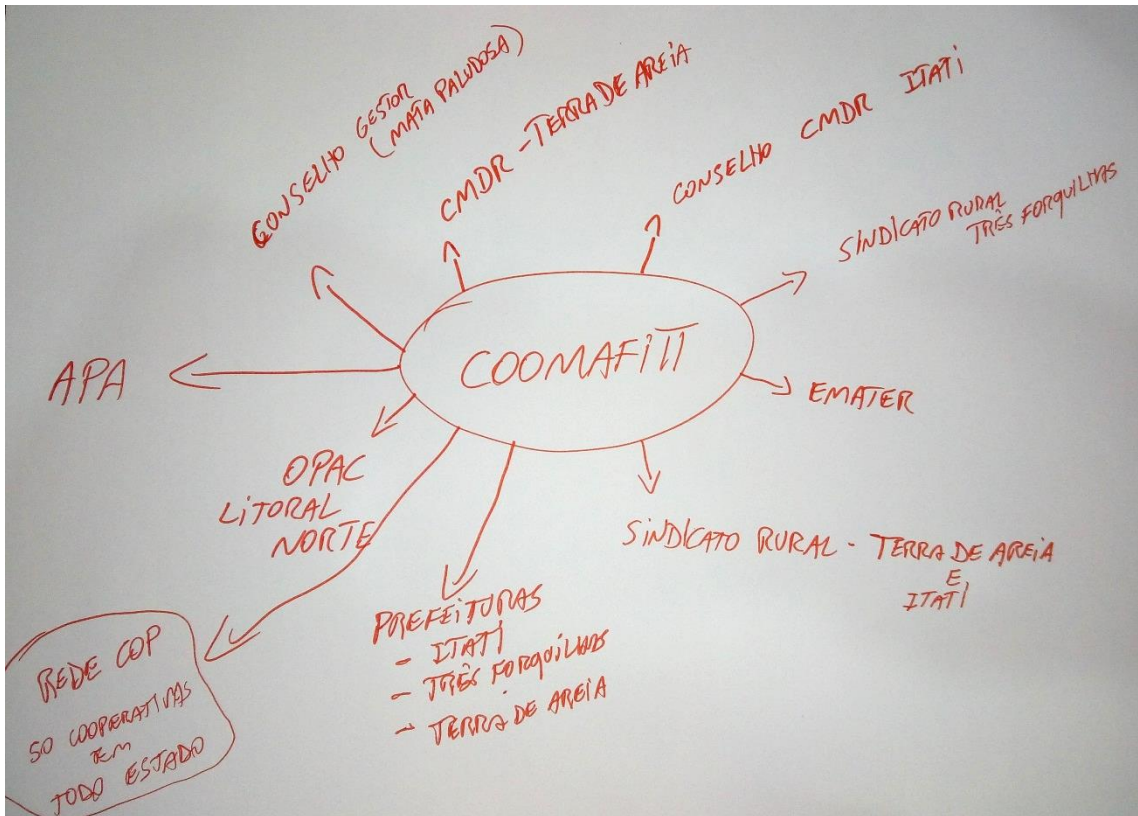 CONSELHO GESTOR
(MATA PALUDOSA)
CMDR - TERRA DE AREIA
CONSELHO CMDR ITATI
SINDICATO RURAL
TRÊS FORQUILHAS
COOMAFITT
APA
EMATER
OPAC
LITORAL
NORTE
SINDICATO RURAL - TERRA DE AREIA
E
ITATI
PREFEITURAS
- ITATI
- TRÊS FORQUILHAS
- TERRA DE AREIA
REDE COP
50 COOPERATIVAS
EM
TODO ESTADO